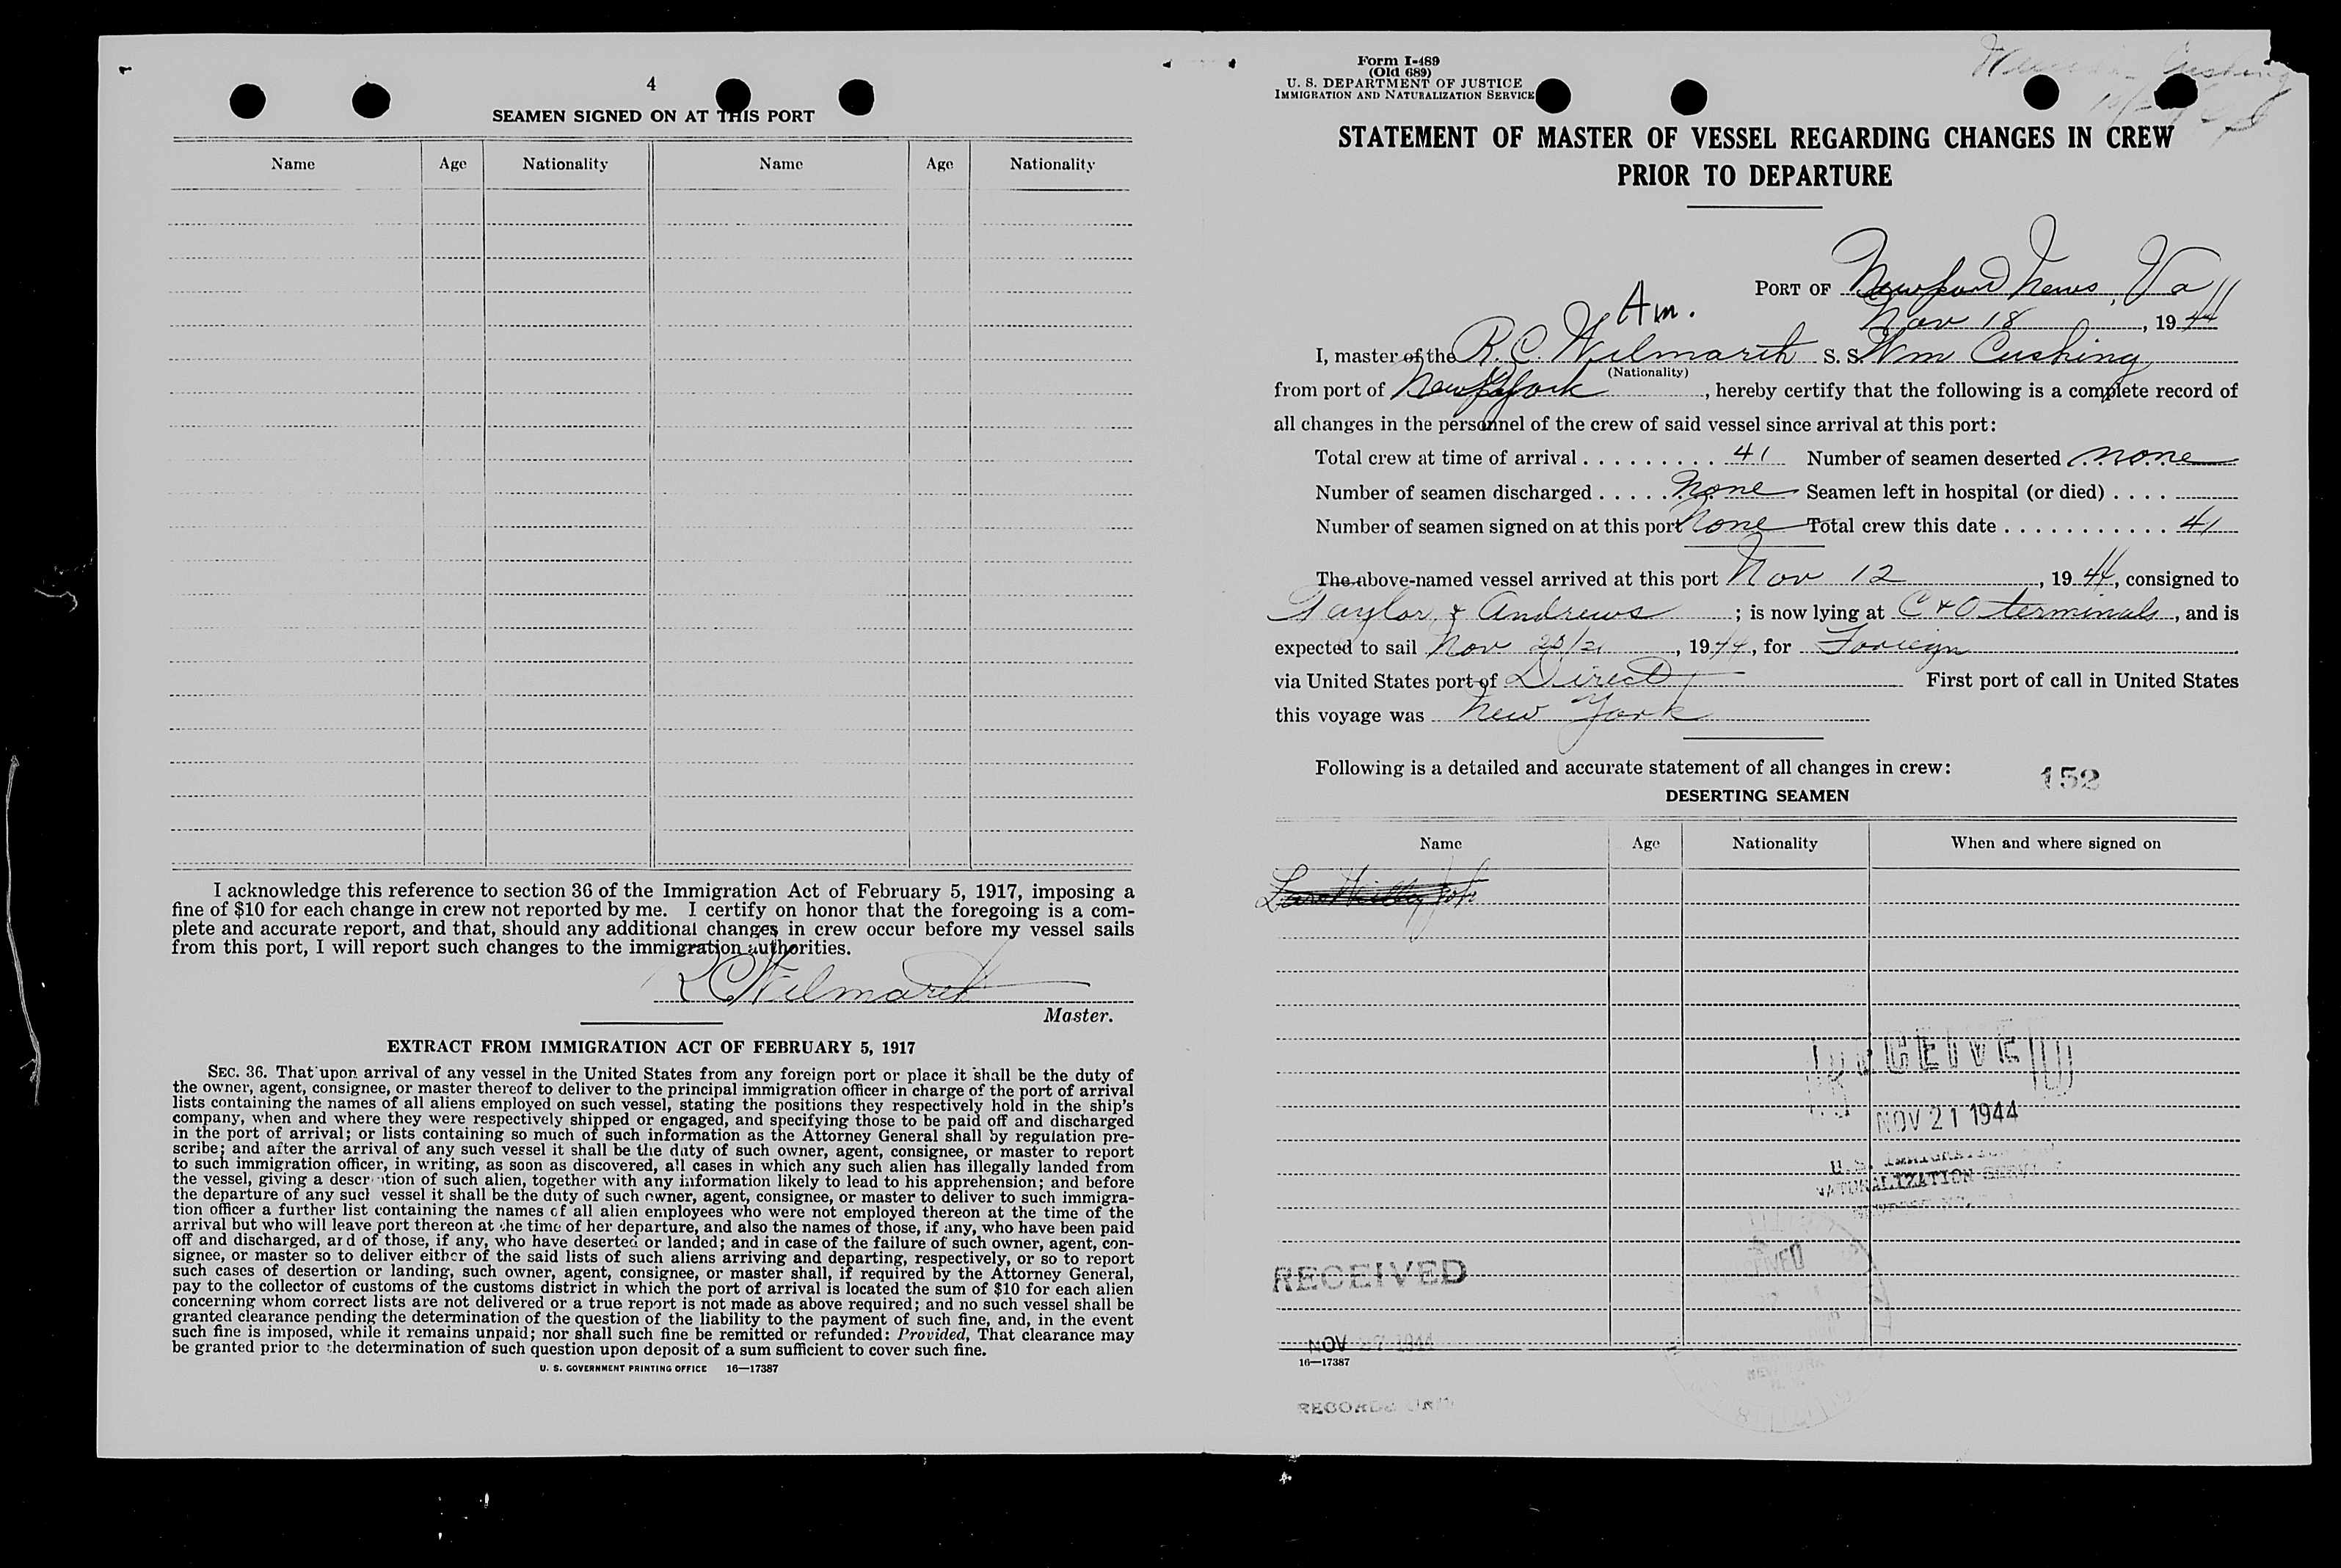 4
SEAMEN SIGNED ON AT THIS PORT
Name Age Nationality Name Age Nationality
I acknowledge this reference to section 36 of the Immigration Act of February 5, 1917, imposing a
fine of $10 for each change in crew not reported by me. I certify on honor that the foregoing is a com-
plete and accurate report, and that, should any additional changes in crew occur before my vessel sails
from this port, I will report such changes to the immigration authorities.
R C Wilmarth
Master.
EXTRACT FROM IMMIGRATION ACT OF FEBRUARY 5, 1917
SEC. 36. That upon arrival of any vessel in the United States from any foreign port or place it shall be the duty of
the owner, agent, consignee, or master thereof to deliver to the principal immigration officer in charge of the port of arrival
lists containing the names of all aliens employed on such vessel, stating the positions they respectively hold in the ship's
company, when and where they were respectively shipped or engaged, and specifying those to be paid off and discharged
in the port of arrival; or lists containing so much of such information as the Attorney General shall by regulation pre-
scribe; and after the arrival of any such vessel it shall be the duty of such owner, agent, consignee, or master to report
to such immigration officer, in writing, as soon as discovered, all cases in which any such alien has illegally landed from
the vessel, giving a description of such alien, together with any information likely to lead to his apprehension; and before
the departure of any such vessel it shall be the duty of such owner, agent, consignee, or master to deliver to such immigra-
tion officer a further list containing the names of all alien employees who were not employed thereon at the time of the
arrival but who will leave port thereon at the time of her departure, and also the names of those, if any, who have been paid
off and discharged, and of those, if any, who have deserted or landed; and in case of the failure of such owner, agent, con-
signee, or master so to deliver either of the said lists of such aliens arriving and departing, respectively, or so to report
such cases of desertion or landing, such owner, agent, consignee, or master shall, if required by the Attorney General,
pay to the collector of customs of the customs district in which the port of arrival is located the sum of $10 for each alien
concerning whom correct lists are not delivered or a true report is not made as above required; and no such vessel shall be
granted clearance pending the determination of the question of the liability to the payment of such fine, and, in the event
such fine is imposed, while it remains unpaid; nor shall such fine be remitted or refunded: Provided, That clearance may
be granted prior to the determination of such question upon deposit of a sum sufficient to cover such fine.
U. S. GOVERNMENT PRINTING OFFICE 16—17387
Form I-489
(Old 689)
U. S. DEPARTMENT OF JUSTICE
IMMIGRATION AND NATURALIZATION SERVICE
Cushing
STATEMENT OF MASTER OF VESSEL REGARDING CHANGES IN CREW
PRIOR TO DEPARTURE
PORT OF Newport News, Va
Nov 18, 1944
Am.
I, master of the R. C. Wilmarth S. S. Wm Cushing
(Nationality)
from port of New York, hereby certify that the following is a complete record of
all changes in the personnel of the crew of said vessel since arrival at this port:
Total crew at time of arrival . . . . . . . . . 41 Number of seamen deserted none
Number of seamen discharged . . . . . None Seamen left in hospital (or died) . . . .
Number of seamen signed on at this port None Total crew this date . . . . . . . . . . . 41
The above-named vessel arrived at this port Nov 12, 1944, consigned to
Taylor & Andrews; is now lying at C & O terminals, and is
expected to sail Nov 20/21, 1944, for Foreign
via United States port of Direct First port of call in United States
this voyage was New York
Following is a detailed and accurate statement of all changes in crew:
152
DESERTING SEAMEN
Name Age Nationality When and where signed on
RECEIVED
NOV 21 1944
U. S. IMMIGRATION
NATURALIZATION SERVICE
RECEIVED
NOV 27 1944
16—17387
RECORDS UNIT